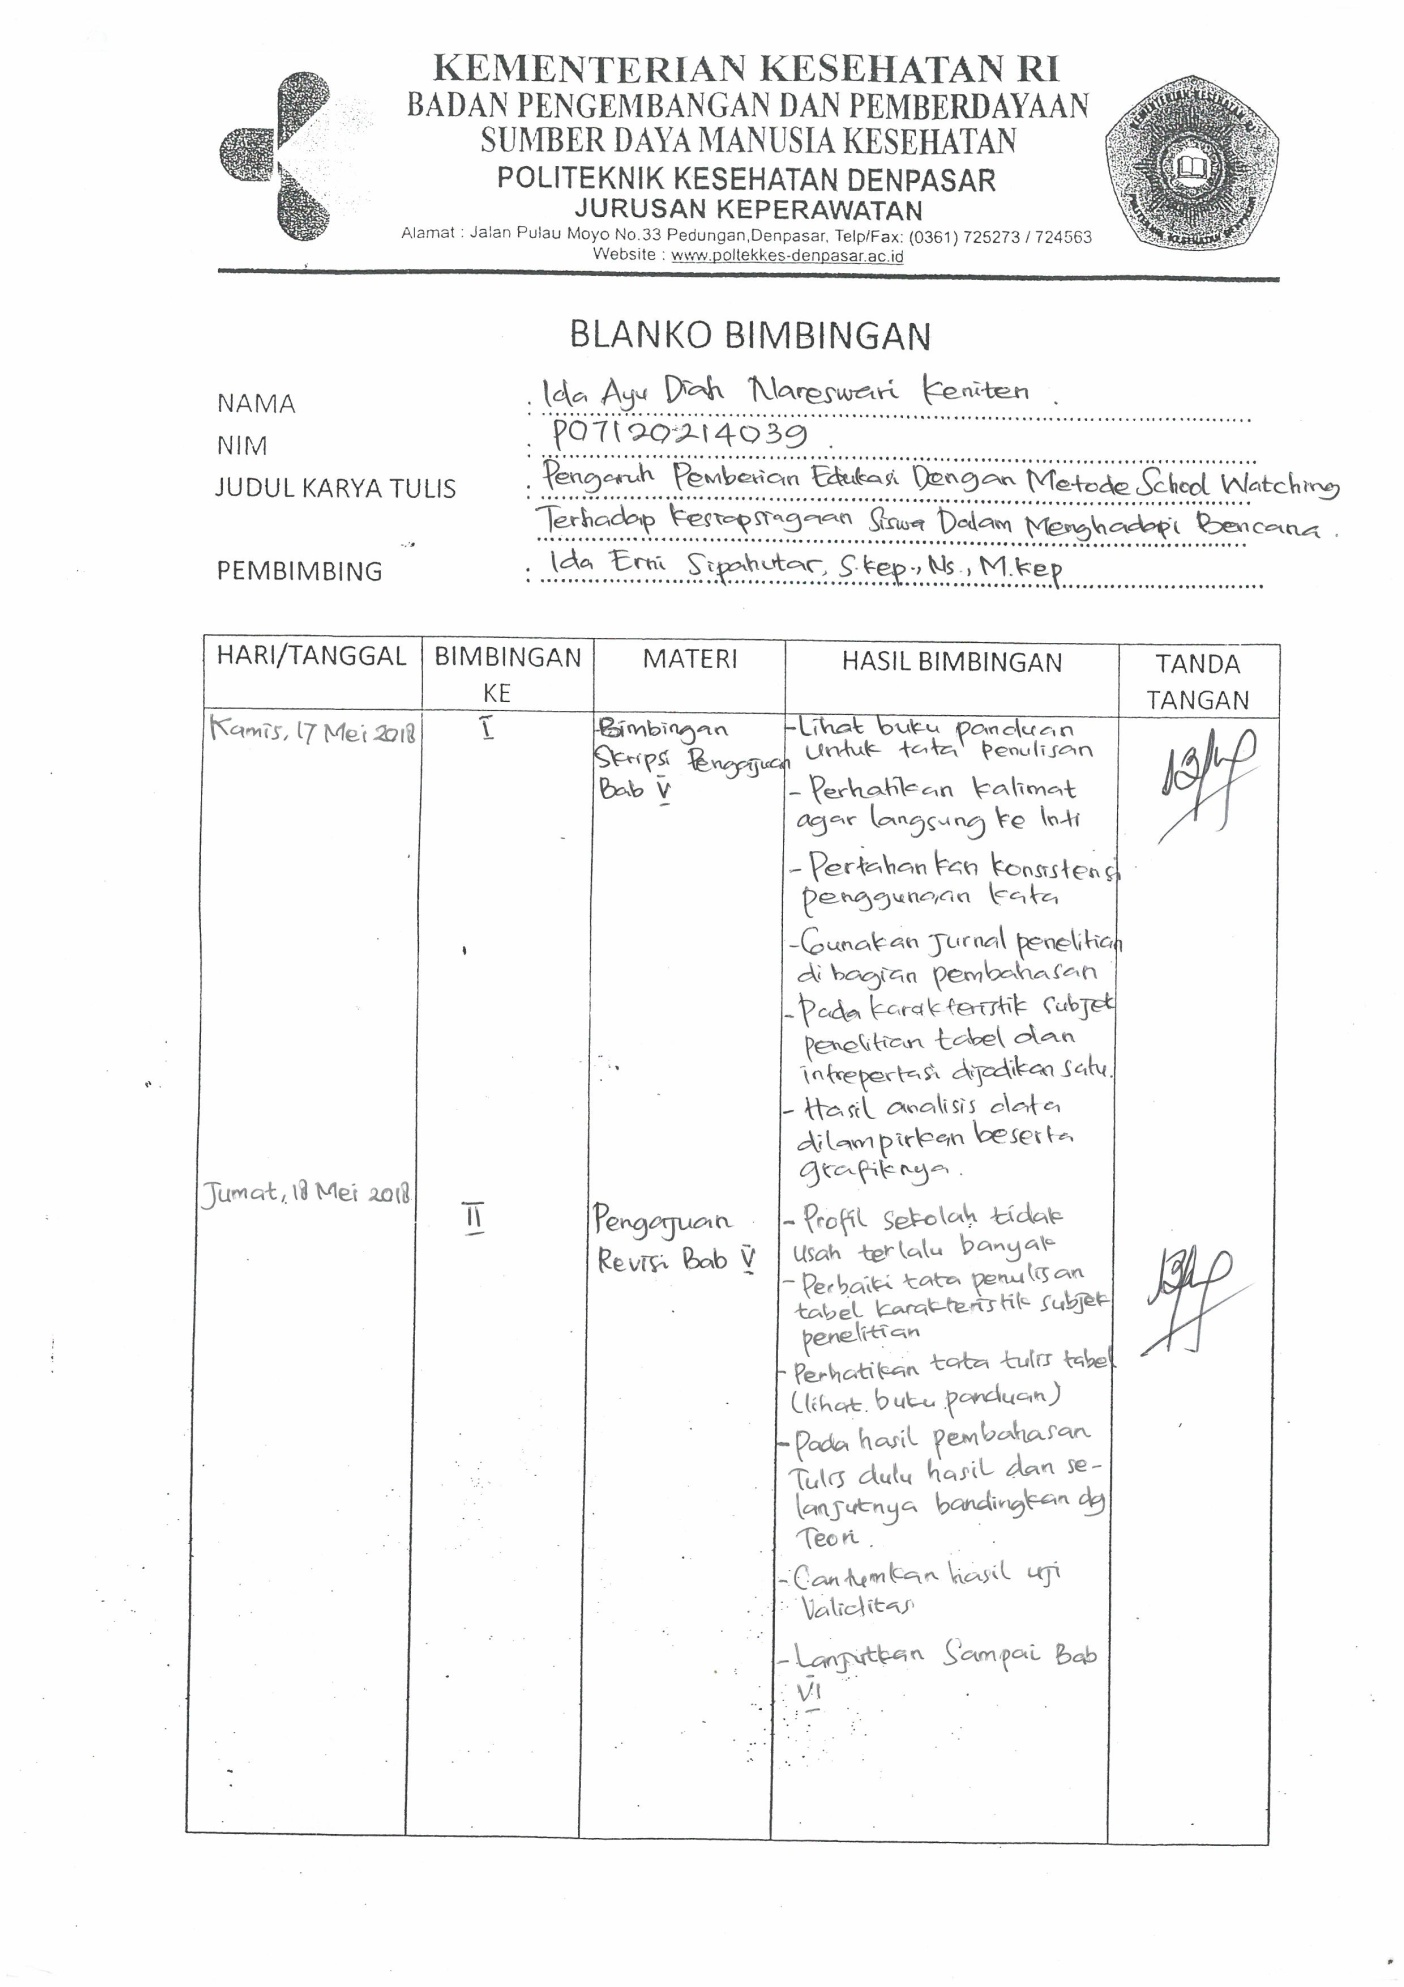 KEMENTERIAN KESEHATAN RI
BADAN PENGEMBANGAN DAN PEMBERDAYAAN
SUMBER DAYA MANUSIA KESEHATAN
POLITEKNIK KESEHATAN DENPASAR
JURUSAN KEPERAWATAN
Alamat : Jalan Pulau Moyo No.33 Pedungan,Denpasar, Telp/Fax: (0361) 725273 / 724563
Website : www.poltekkes-denpasar.ac.id
KEMENTERIAN KESEHATAN RI
POLITEKNIK KESEHATAN DENPASAR
BLANKO BIMBINGAN
NAMA : Ida Ayu Diah Nareswari Keniten .
NIM : P07120214039 .
JUDUL KARYA TULIS : Pengaruh Pemberian Edukasi Dengan Metode School Watching
Terhadap Kesiapsiagaan Siswa Dalam Menghadapi Bencana .
PEMBIMBING : Ida Erni Sipahutar, S.Kep., Ns., M.Kep
HARI/TANGGAL BIMBINGAN MATERI HASIL BIMBINGAN TANDA
KE TANGAN
Kamis, 17 Mei 2018 I
Bimbingan
Skripsi Pengajuan
Bab V
-Lihat buku panduan
untuk tata penulisan
- Perhatikan kalimat
agar langsung ke Inti
- Pertahankan konsistensi
penggunaan kata
-Gunakan Jurnal penelitian
di bagian pembahasan
- Pada karakteristik subjek
penelitian tabel dan
intrepertasi dijadikan satu.
- Hasil analisis data
dilampirkan beserta
grafiknya.
Jumat, 18 Mei 2018 II
Pengajuan
Revisi Bab V
- Profil sekolah tidak
usah terlalu banyak
- Perbaiki tata penulisan
tabel karakteristik subjek
penelitian
- Perhatikan tata tulis tabel
(lihat buku panduan)
- Pada hasil pembahasan
Tulis dulu hasil dan se-
lanjutnya bandingkan dg
Teori.
- Cantumkan hasil uji
Validitas
- Lanjutkan Sampai Bab
VI